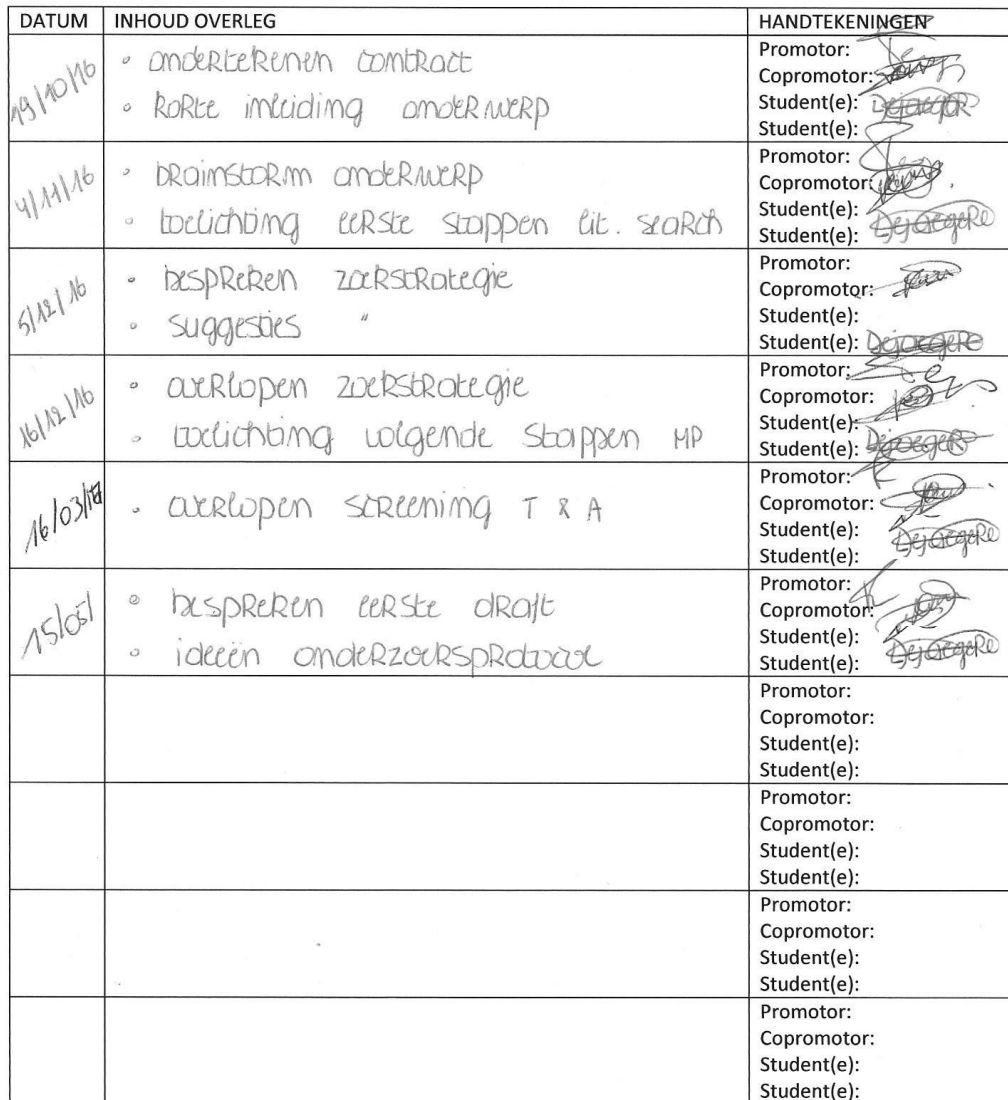 DATUM INHOUD OVERLEG HANDTEKENINGEN
19/10/16
• ondertekenen contract
• korte inleiding onderwerp
Promotor:
Copromotor:
Student(e): Dejaeger
Student(e):
4/11/16
• brainstorm onderwerp
• toelichting eerste stappen lit. search
Promotor:
Copromotor:
Student(e):
Student(e): Dejaegere
5/12/16
• bespreken zoekstrategie
• suggesties "
Promotor:
Copromotor:
Student(e):
Student(e): Dejaegere
16/12/16
• overlopen zoekstrategie
• toelichting volgende stappen MP
Promotor:
Copromotor:
Student(e):
Student(e): Dejaegere
16/03/17
• overlopen screening T & A
Promotor:
Copromotor:
Student(e):
Student(e): Dejaegere
15/05/
• bespreken eerste draft
• ideeën onderzoeksprotocol
Promotor:
Copromotor:
Student(e):
Student(e): Dejaegere
Promotor:
Copromotor:
Student(e):
Student(e):
Promotor:
Copromotor:
Student(e):
Student(e):
Promotor:
Copromotor:
Student(e):
Student(e):
Promotor:
Copromotor:
Student(e):
Student(e):